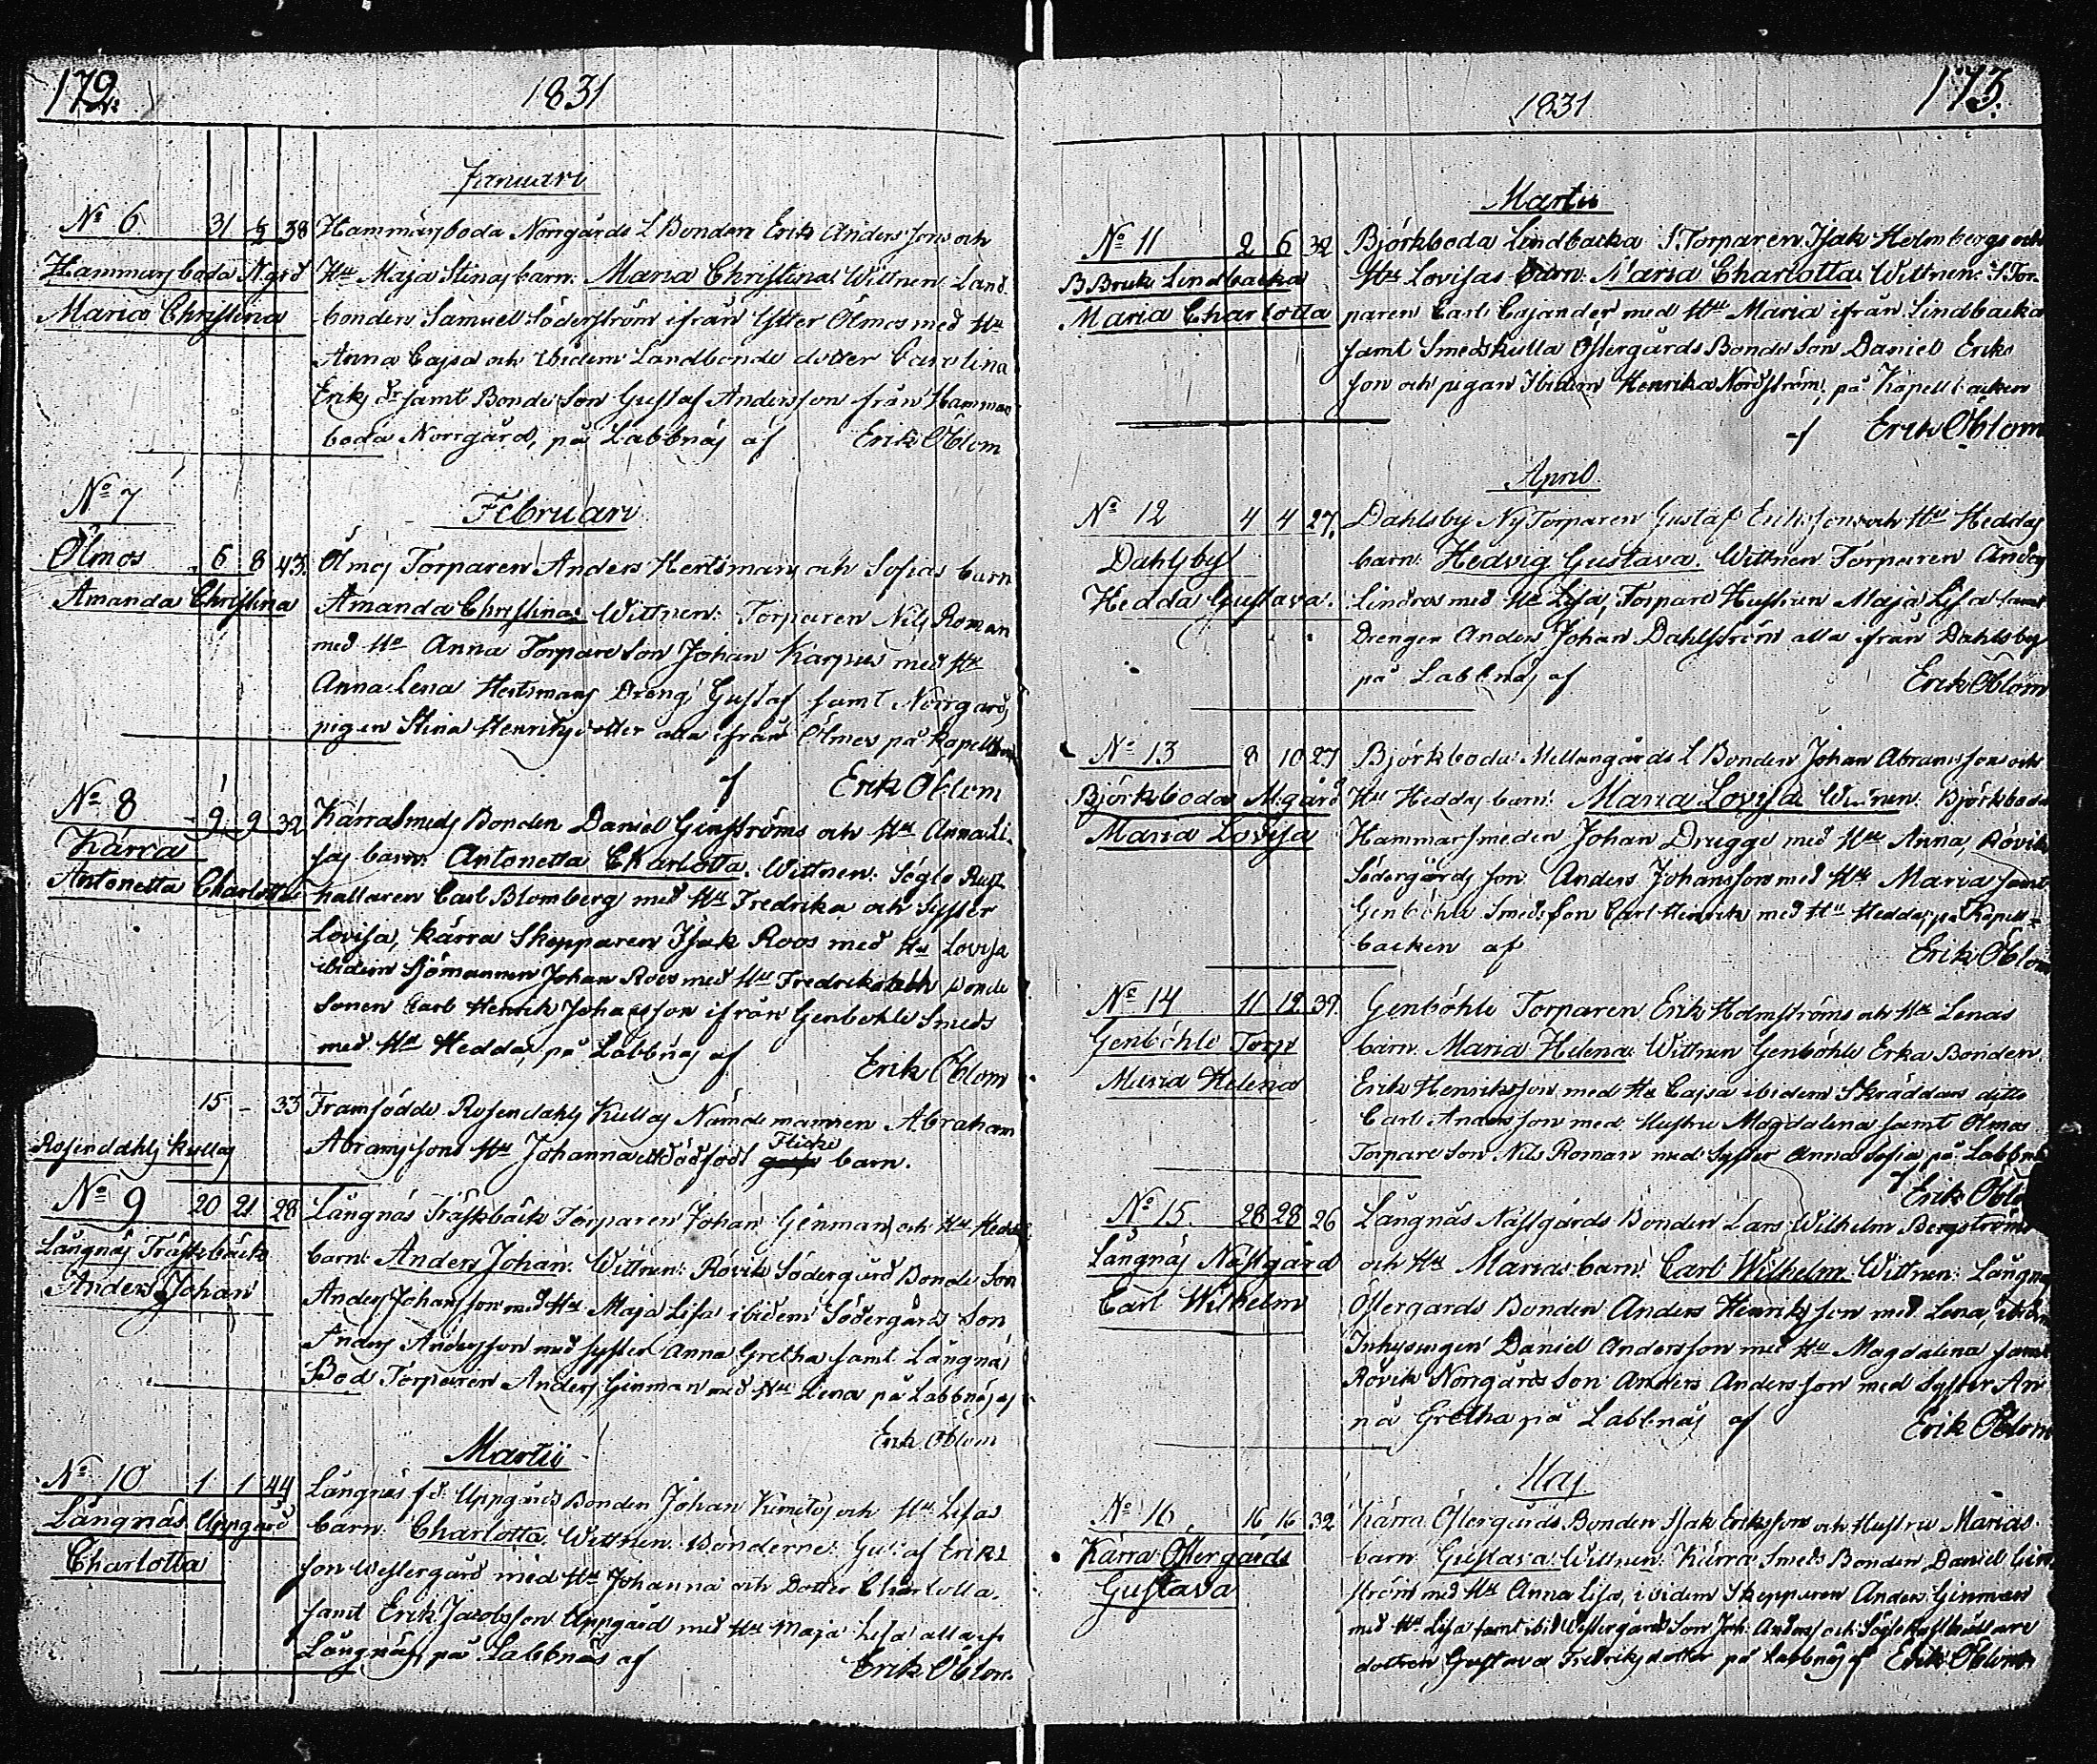 172.
1831
Januari
No 6 31 2/2 38 Hammarsboda Norrgårds L Bonden Erik Anders sons och
Hammarsboda N.grd Hu Maja Stinas barn: Maria Christina Wittnen: Land
Maria Christina bonden Samuel Söderström ifrån Ytter Ölmos med Hu
Anna Cajsa och ibidem Landbonde dotter Carolina
Eriks dr samt Bonde Son Gustaf Andersson från Hammar
boda Norrgård, på Labbnäs af Erik Öblom
No 7
Februari
Ölmos 6 8 43. Ölmos Torparen Anders Hertsmans och Sofias barn
Amanda Christina Amanda Christina: Wittnen: Torparen Nils Roman
med Hu Anna Torpare Son Johan Karpus med Hu
Anna Lena Hertsmans Dreng Gustaf samt Norrgards
pigan Stina Henriksdotter alla ifrån Ölmos på Kapellbn
af Erik Öblom
No 8 9 9 32 Kärra Smeds Bonden Daniel Genströms och Hu Anna Li-
Kärra sas barn: Antonetta Charlotta. Wittnen: Söglo Rust
Antonetta Charlotta hallaren Carl Blomberg med Hu Fredrika och Syster
Lovisa, Kärra Skepparen Isak Roos med Hu Lovisa
ibidem Sjömannen Johan Roos med Hu Fredrika och Bonde
sonen Carl Henrik Johansson ifrån Genböhle Smeds
med Hu Hedda, på Labbnäs af Erik Öblom
15 – 33 Framfödde Rosendahls Kullas Nämdemannen Abraham
Rosendahls Kullas Abramssons Hu Johanna ett dödfödt Flicke barn.
No 9 20 21 28 Långnäs Träskbäck Torparen Johan Ginmans och Hu Hedda
Långnäs Träskbäck barn: Anders Johan: Wittnen: Rövik Södergård Bonde Son
Anders Johan Anders Johansson med Hu Maja Lisa ibidem Södergårds Son
Anders Andersson med syster Anna Gretha samt Långnäs
Bod Torparen Anders Ginman med Hu Lena på Labbnäs af
Erik Öblom
Martii
No 10 1 1 44 Långnäs fd: Uppgårds Bonden Johan Kimitos och Hu Lisas
Långnäs Uppgård barn: Charlotta. Wittnen: Bönderne: Gustaf Eriks
Charlotta son Westergård med Hu Johanna och Dotter Charlotta.
samt Erik Jacobsson Uppgård med Hu Maja Lisa alla ifr
Långnäs, på Labbnäs af Erik Öblom.
173.
1831
Martii
No 11 2 6 32 Björkboda Lindbacka S. Torparen Isak Holmbergs och
B Bruk Lindbacka Hu Lovisas Barn: Maria Charlotta. Wittnen: S Tor-
Maria Charlotta paren Carl Cajander med Hu Maria ifrån Lindbacka
samt Smedskulla Östergårds Bonde Son Daniel Eriks
son och pigan Ibidem Henrika Nordström, på Kapellbacken
af Erik Öblom
April
No 12 4 4 27. Dahlsby Ny Torparen Gustaf Erikssons och Hu Heddas
Dahlsby barn: Hedvig Gustava. Wittnen Torparen Anders
Hedda Gustava. Lindros med Hu Lisa, Torpare Hustrun Maja Lisa samt
Drengen Anders Johan Dahlström alla ifrån Dahlsby
på Labbnäs af Erik Öblom
No 13 8 10 27 Björkboda Mellangårds L Bonden Johan Abramssons och
Björkboda M.gård Hu Heddas barn: Maria Lovisa Wittnen: Björkboda
Maria Lovisa Hammarsmeden Johan Drugge med Hu Anna, Rövik
Södergårds son Anders Johansson med Hu Maria samt
Genböhle Smeds Son Carl Henrik med Hu Hedda, på Kapell-
backen af Erik Öblom
No 14 11 12 39. Genböhle Torparen Erik Holmströms och Hu Lenas
Genböhle Torp barn Maria Helena: Wittnen Genböhle Erka Bonden
Maria Helena Erik Henriksson med Hu Cajsa ibidem Skräddare ditto
Carl Andersson med Hustru Magdalena samt Ölmos
Torpare Son Nils Roman med Syster Anna Sofia på Labbnäs
af Erik Öblo
No 15. 28 28 26 Långnäs Nästgårds Bonden Lars Wilhelm Bergströms
Långnäs Nästgård och Hu Marias barn: Carl Wilhelm. Wittnen: Långnäs
Carl Wilhelm Östergards Bonden Anders Henriksson med Lena, ibidem
Inhysingen Daniel Andersson med Hu Magdalena samt
Rövik Norrgårds Son Anders Andersson med Syster An
na Gretha på Labbnäs af Erik Öblom
Maj
No 16 16 16 32 Kärra Östergårds Bonden Isak Erikssons och Hustru Marias
Kärra Östergårds barn Gustava: Wittnen: Kärra Smeds Bonden Daniel Gen
Gustava ström med Hu Anna Lisa, ibidem Skepparen Anders Ginman
med Hu Lisa samt ibid Westergårds Son Joh: Anders och Söglo Rusthållare
dottren Gustava Fredriks dotter på Labbnäs af Erik Öblom